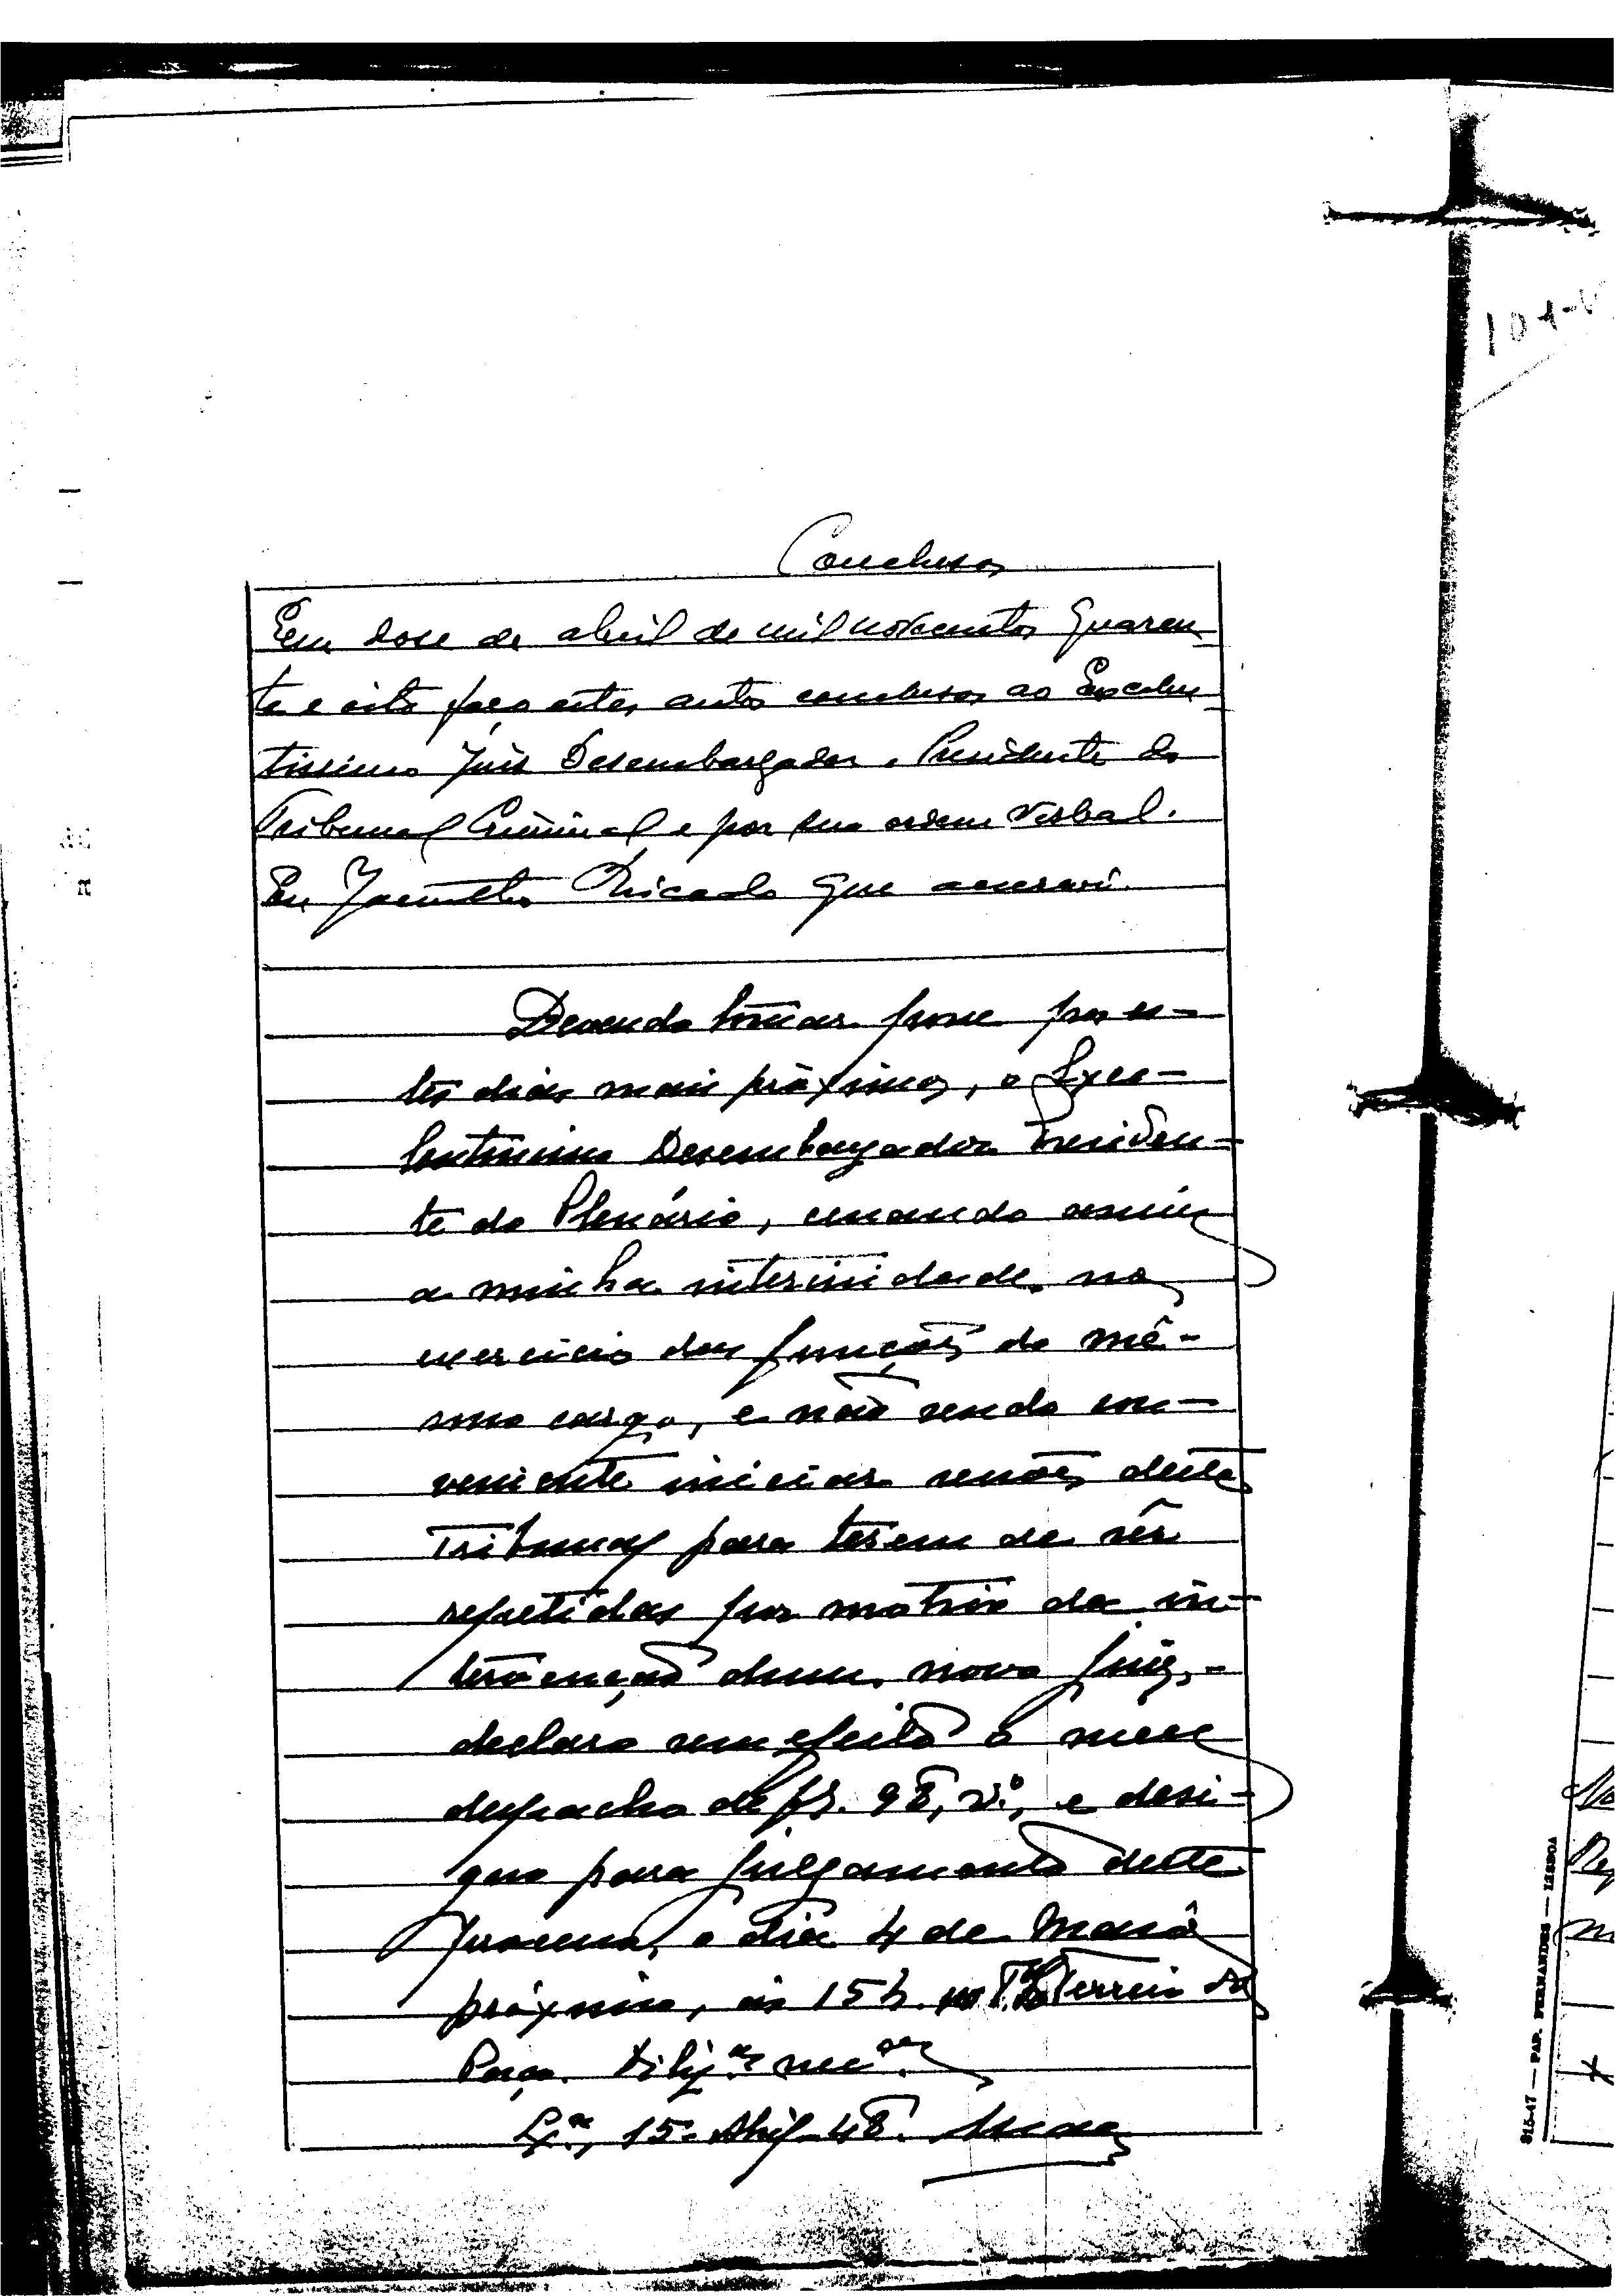 104-V
Conclusos
Em dose de abril de mil novecentos quaren
ta e oito faço estes autos conclusos ao Excelen
tissimo Juis Desembargador, Presidente do
Tribunal Criminal e por sua ordem verbal.
Eu Jacinto Ricardo que escrevi.
Devendo tomar posse por es-
tes dias mais próximos, o Exce-
lentíssimo Desembargador Presiden-
te do Plenário, cessando assim
a minha interinidade no
exercício das funções do mê-
smo cargo, e não sendo con-
veniente iniciar sessões deste
Tribunal para terem de sêr
repetidas por motivo da in-
tervenção dum novo juiz,-
declaro sem efeito o meu
despacho de fs. 98, v.º, e desi-
gno para julgamento deste
processo, o dia 4 de Maio
próximo, às 15 h. no Terreiro do
Paço. Dilig.as nec.as
Lx.a, 15-Abril-48.
815-47 — PAP. FERNANDES — LISBOA